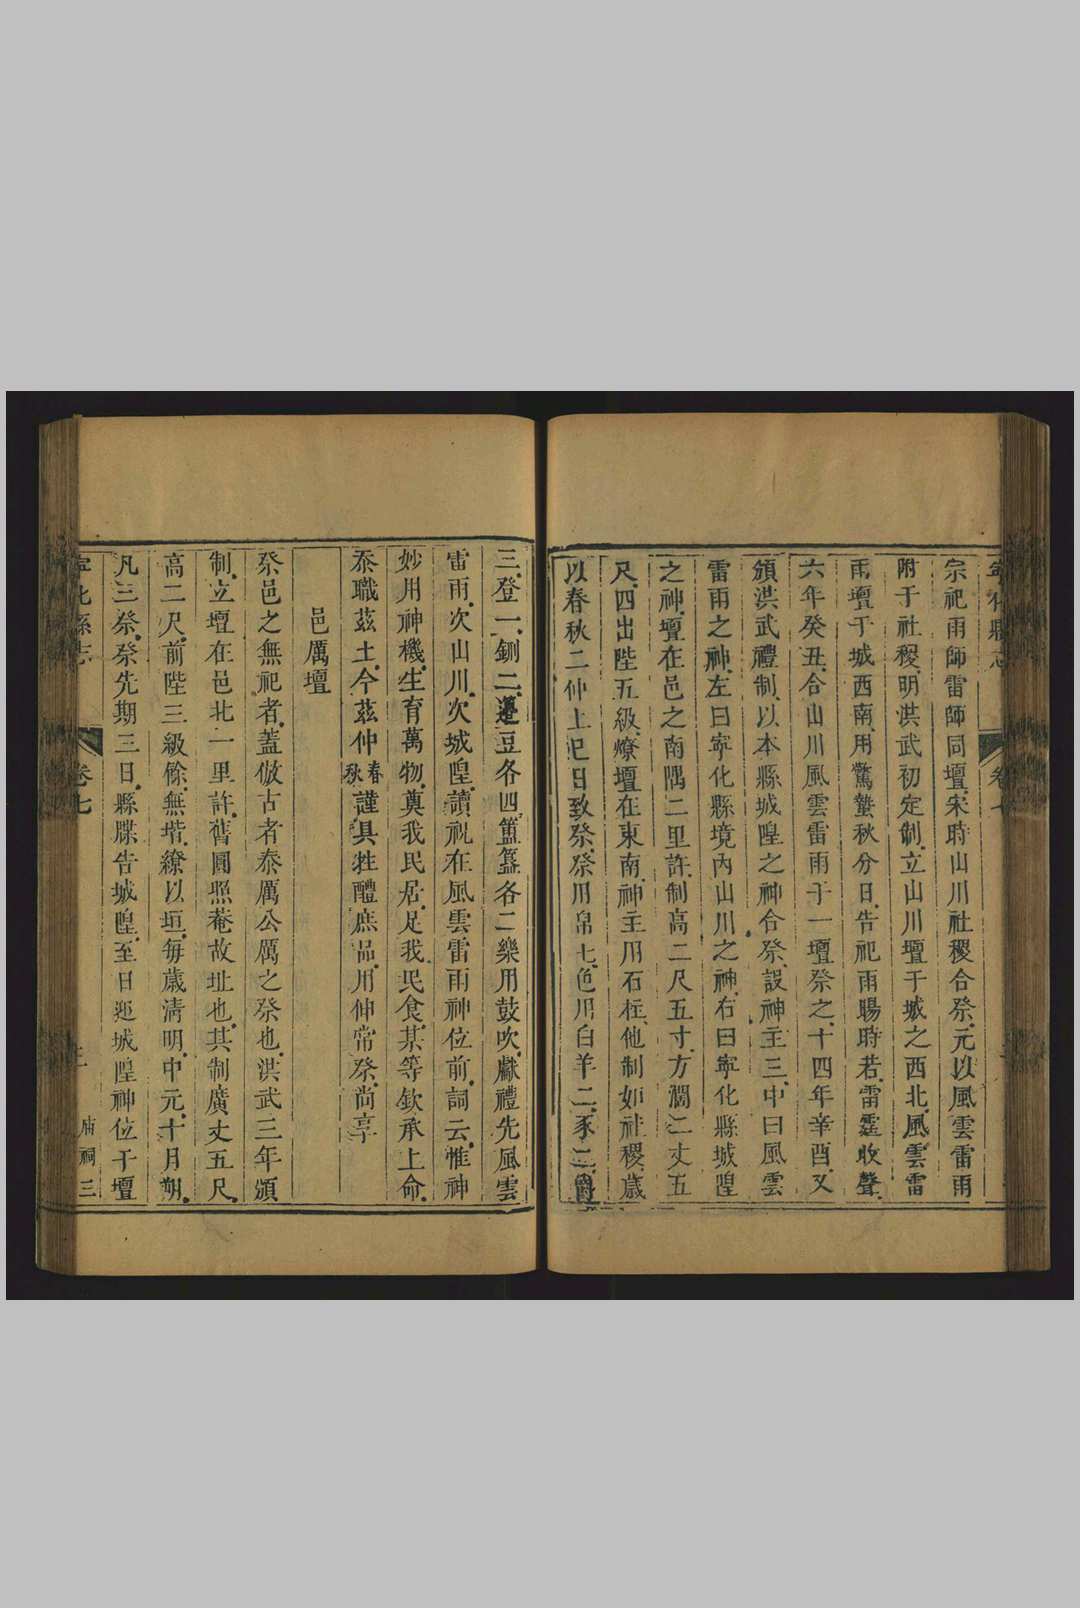 寧化縣志
卷七
宗祀雨師雷師同壇宋時山川社稷合祭元以風雲雷雨
附于社稷明洪武初定制立山川壇于城之西北風雲雷
雨壇于城西南用驚蟄秋分日告祀雨暘時若雷霆收聲
六年癸丑合山川風雲雷雨于一壇祭之十四年辛酉又
頒洪武禮制以本縣城隍之神合祭設神主三中曰風雲
雷雨之神左曰寧化縣境內山川之神右曰寧化縣城隍
之神壇在邑之南隅二里許制高二尺五寸方濶二丈五
尺四出陛五級燎壇在東南神主用石柱他制如社稷歲
以春秋二仲上巳日致祭祭用帛七色用白羊二豕二爵
三登一鉶二籩豆各四簠簋各二樂用鼓吹獻禮先風雲
雷雨次山川次城隍讀祝在風雲雷雨神位前詞云惟神
妙用神機生育萬物奠我民居足我民食某等欽承上命
忝職茲土今茲仲春秋謹具牲醴庶品用伸常祭尚享
邑厲壇
祭邑之無祀者蓋倣古者泰厲公厲之祭也洪武三年頒
制立壇在邑北一里許舊圓照菴故址也其制廣丈五尺
高二尺前陛三級餘無堦繚以垣每歲清明中元十月朔
凡三祭祭先期三日縣牒告城隍至日迎城隍神位于壇
寧化縣志
卷七
廟祠 三